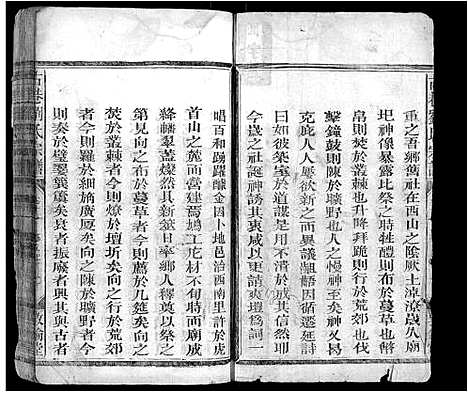 重之吾鄉舊社在西山之陰厥土凉歲久廟
圮神像暴露比祭之時牲醴則布於蔓草幣
帛則焚於叢棘升降拜跪則行於荒郊
擊鐘鼓則羅於曠野也人之慢神至矣神火曷
克庇人人屢欲新之而異議沮語因循遷延詩
曰如彼築室於道謀是用不潰於成其信然耶
今歲之社誕神誘其衷咸以更請爰壇為詞一
唱百和踴躍醵金因卜地邑治西南里許於虎
首山之麓而營建焉鳩工庀材不旬時而廟成
綘轓翠蓋燦然具新筮日率鄉人釋奠以祭之
第見向之薦於蔓草者今則薦於几筵矣向之
焚於叢棘者今則燎於壇圻矣向之行於荒郊
者今則羅於細旃廣厦矣向之陳於曠野者今
則奏於璧翣簨簴矣衰者振廢者興其與古者
敦倫堂